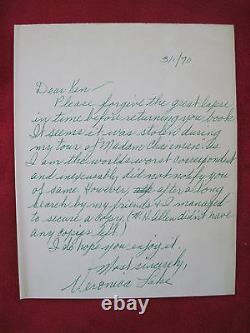 3/1/70
Dear Ken —
Please forgive the great lapse
in time before returning your book.
It seems it was stolen during
my tour of "Madam Chairman". As
I am the world's worst correspondent
and inexcusably, did not notify you
of same. However, after a long
search by my friends & I managed
to secure a copy, (W. H. Allen didn't have
any copies left)
I do hope you enjoy it.
Most sincerely,
Veronica Lake